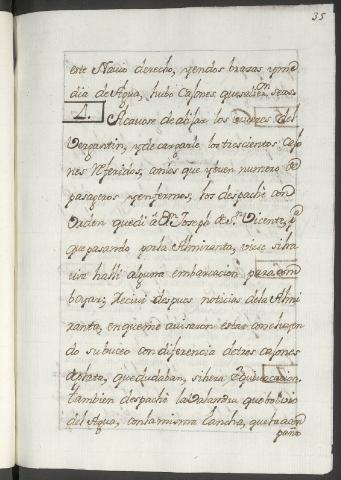 35
este Navio derecho, y en dos brazas y me
dia de Agua, hubo Cajones que salieron
4. Acavose de alijar los viveres del
Vergantin, y de cargarle los trescientos cajo
nes referidos, con los que y buen numero de
pasageros y enfermos, los despaché con
orden que di a Dn. Joseph de Sn. Vicente, pa.
que pasando por la Almiranta, viese si ha
via halli alguna embarcacion para com
boyar; Recivi despues noticias de la Almi
ranta, en que me avisaron estar concluyen
do su buceo con diferencia de tres cajones
de plata, que dudaban, si hera equivocacion,
tambien despaché la valandra que bolvio
del Agua, con la misma Lancha, que la acom
paña